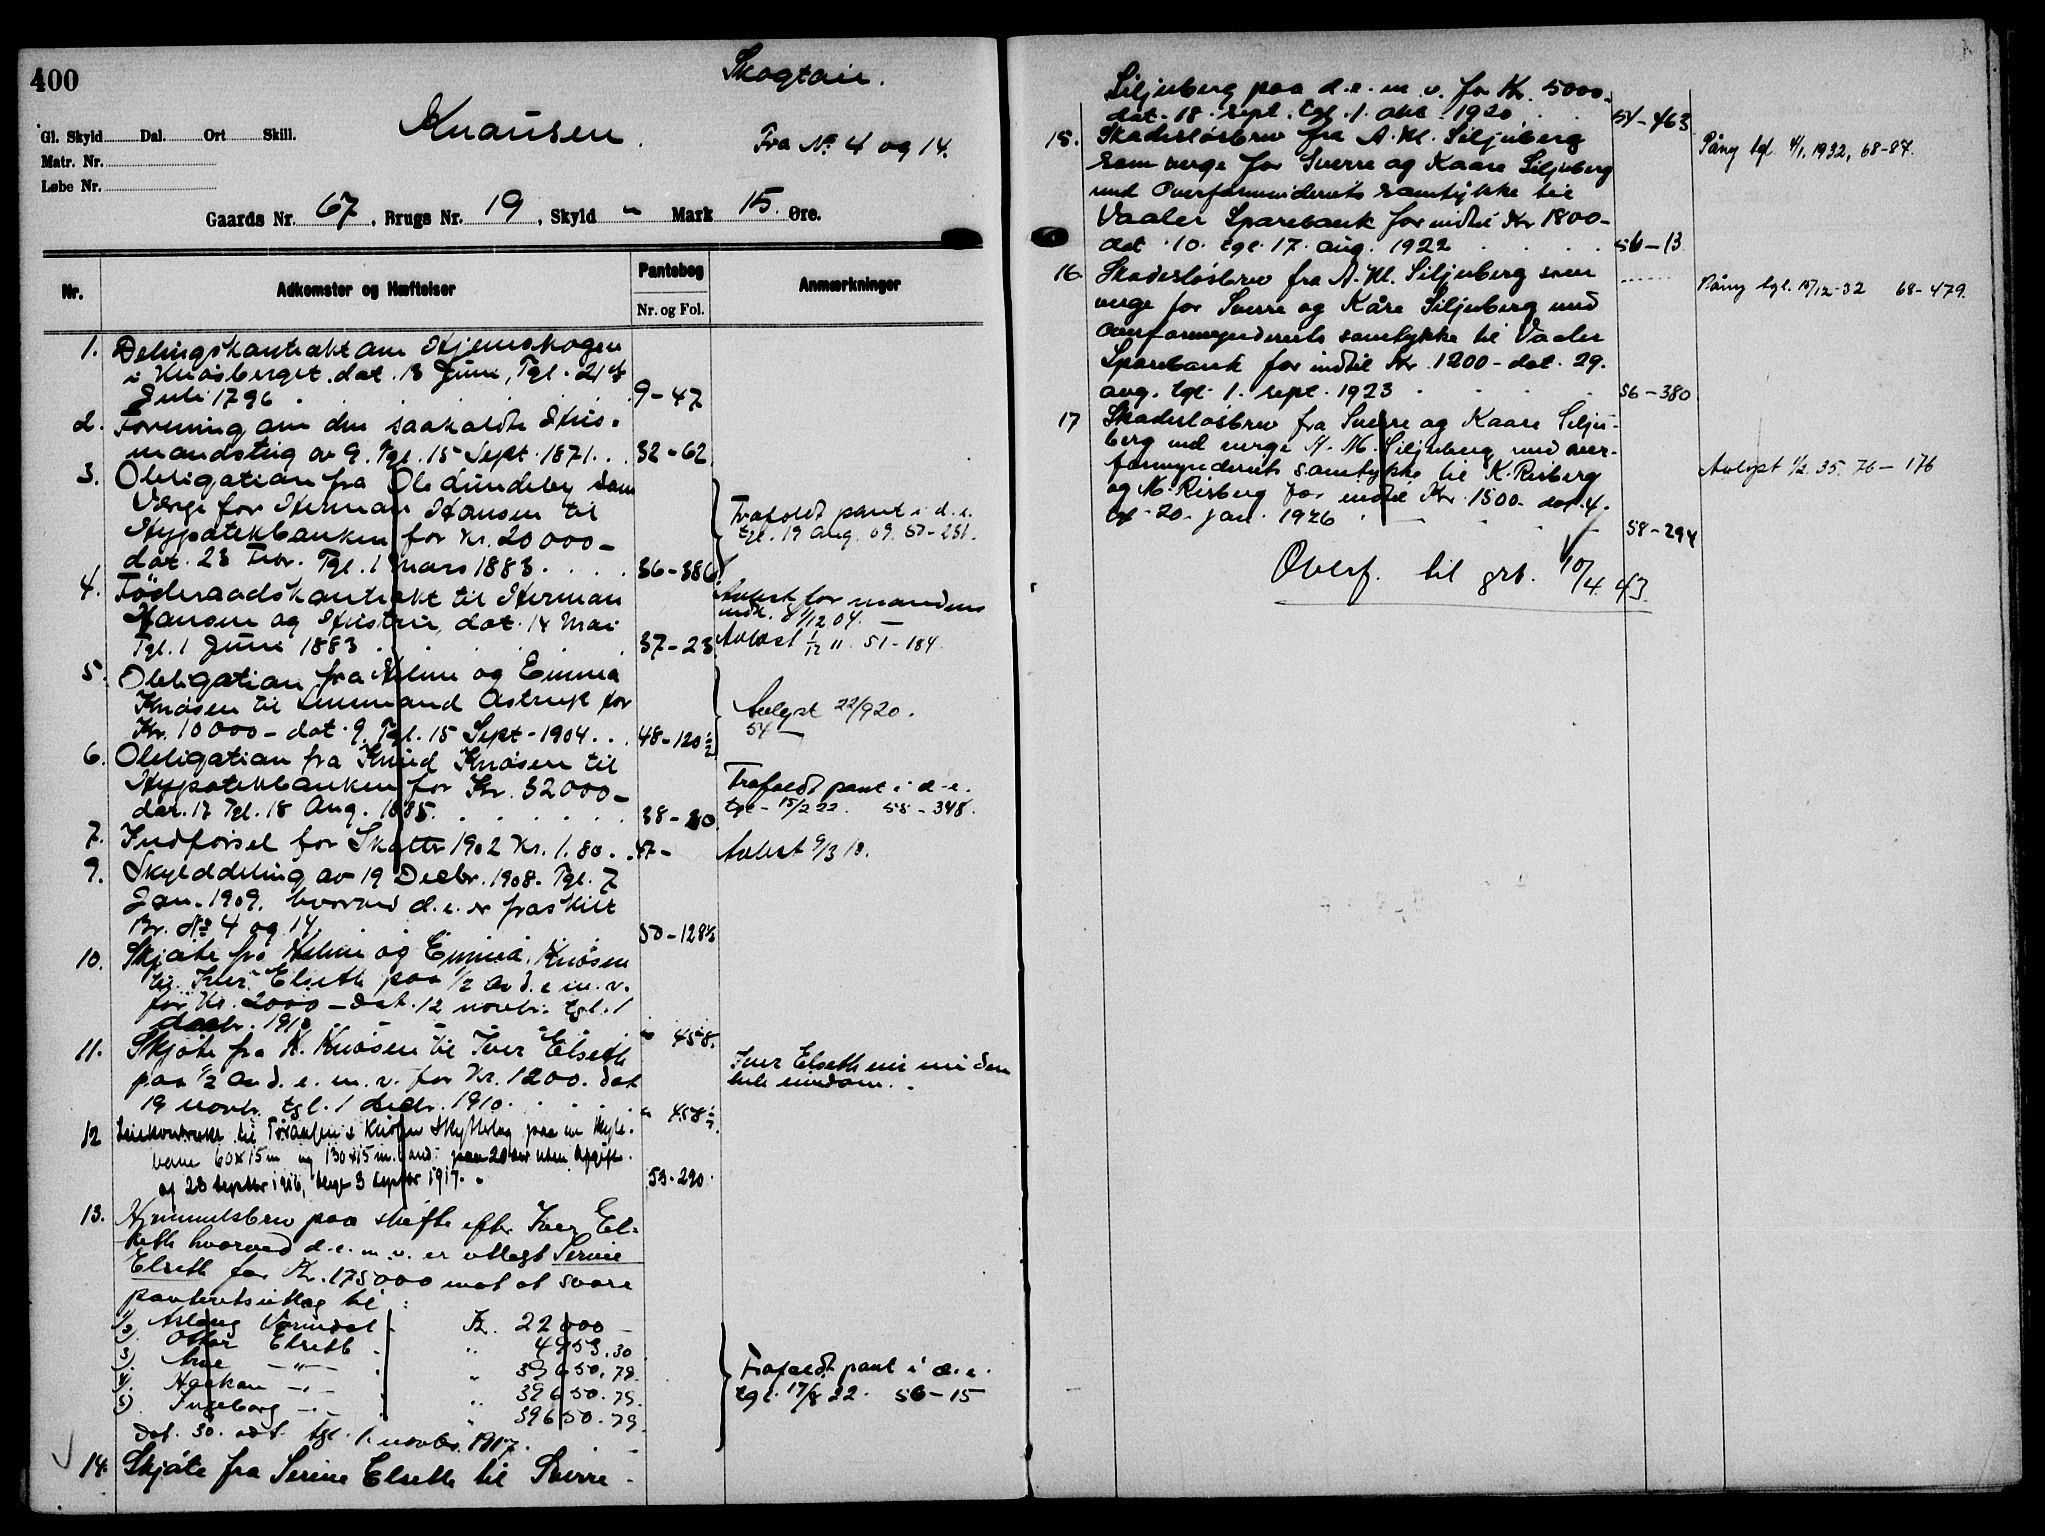 400
Skogtaie.
Knausen.
Fra No 4 og 14.
Gl. Skyld Dal. Ort Skill.
Matr. Nr.
Løbe Nr.
Gaards Nr. 67, Brugs Nr. 19, Skyld " Mark 15 Øre.
Nr. Adkomster og Hæftelser Pantebog Nr. og Fol. Anmærkninger
1. Delingskontrakt om Hjemskogen
i Knøsberget dat. 13 Juni, Tgl. 21de
Juli 1796 9-47
2. Forening om den saakaldte Hus-
mandsteig av 9. Tgl. 15 Sept. 1871. 32-62
3. Obligation fra Ole Sundeby som
Værge for Herman Hansen til
Hypotekbanken for Kr. 20000-
dat. 23 Febr. Tgl. 1 mars 1883. 36-386
Frafaldt pant i d.e.
tgl. 19 Aug. 09. 50-251.
4. Føderaadskontrakt til Herman
Hansen og Hustru, dat. 14 Mai
Tgl. 1 Juni 1883 37-23
Avlyst for mandens
vedk. 8/12 04.
Avlyst 1/12 11. 51-184.
5. Obligation fra Helene og Emma
Knøsen til Astrup for
Kr. 10000- dat. 9. Tgl. 15 Sept. 1904. 48-120½
Avlyst 22/9 20.
54
6. Obligation fra Knud Knøsen til
Hypotekbanken for Kr. 32000-
dat. 17 Tgl. 18 Aug. 1885. 38-20
Frafaldt pant i d.e.
tgl. 15/2 22. 55-348.
7. Indførsel for Skatter 1902 Kr. 1.80. 47-
Avlyst 9/3 10.
9. Skylddeling av 19 Decbr. 1908. Tgl. 7
Jan. 1909. hvorved d.e. er fraskilt
Br. No 4 og 14. 50-128½
10. Skjøte fra Helene og Emma Knøsen
til Iver Elseth paa 1/2 av d.e.m.v.
for Kr. 2000- dat. 12 novbr. tgl. 1
decbr. 1910 " 458.
11. Skjøte fra K. Knøsen til Iver Elseth
paa 1/2 av d.e.m.v. for Kr. 1200. dat
19 novbr. tgl. 1 decbr. 1910. " 458½.
Iver Elseth eier nu den
hele eiendom.
12 Leiekontrakt til Knøsen Skytterlag paa en Skyte-
bane 60x15m og 130x15m. paa 20 aar uten Avgift.
af 28 Septbr 1916, tingl. 3 Septbr 1917. 53-290.
13. Hjemmelsbrev paa skifte efter Iver El-
seth hvorved d.e.m.v. er utlagt Serine
Elseth for Kr. 175000 mot at svare
panteretsutlæg til:
1) Aslaug Kr. 22000
2) Ottar Elseth " 4953.30
3) Arne -"- " 39650.79.
4) Haakon -"- 39650.79.
5) Ingeborg -"- " 39650.79
dat. 30. okt. tgl. 1. novbr. 1917.
Frafaldt pant i d.e.
tgl. 17/8 22. 56-15
14. Skjøte fra Serine Elseth til Sverre
Siljuberg paa d.e.m.v. for Kr. 5000-
dat. 18. sept. tgl. 1. okt. 1920 54-463
15. Skadesløsbrev fra A. M. Siljuberg
som verge for Sverre og Kaare Siljuberg
med Overformynderiets samtykke til
Vaaler Sparebank for indtil Kr 1800-
dat. 10. tgl. 17. aug. 1922 56-13
Påny tgl. 4/1. 1932, 68-87.
16. Skadesløsbrev fra A. M. Siljuberg som
verge for Sverre og Kåre Siljuberg med
Overformynderiets samtykke til Vaaler
Sparebank for indtil Kr. 1200- dat. 29.
aug. tgl. 1. sept. 1923 56-380
Påny tgl. 15/12-32 68-479.
17 Skadesløsbrev fra Sverre og Kaare Silju-
berg med verge A. M. Siljuberg med over-
formynderiets samtykke til K. Risberg
og M. Risberg for indtil Kr. 1500- dat. 4.
tgl. 20. jan. 1926 58-294
Avlyst 1/2 35. 76-176
Overf. til grb. 10/4 43